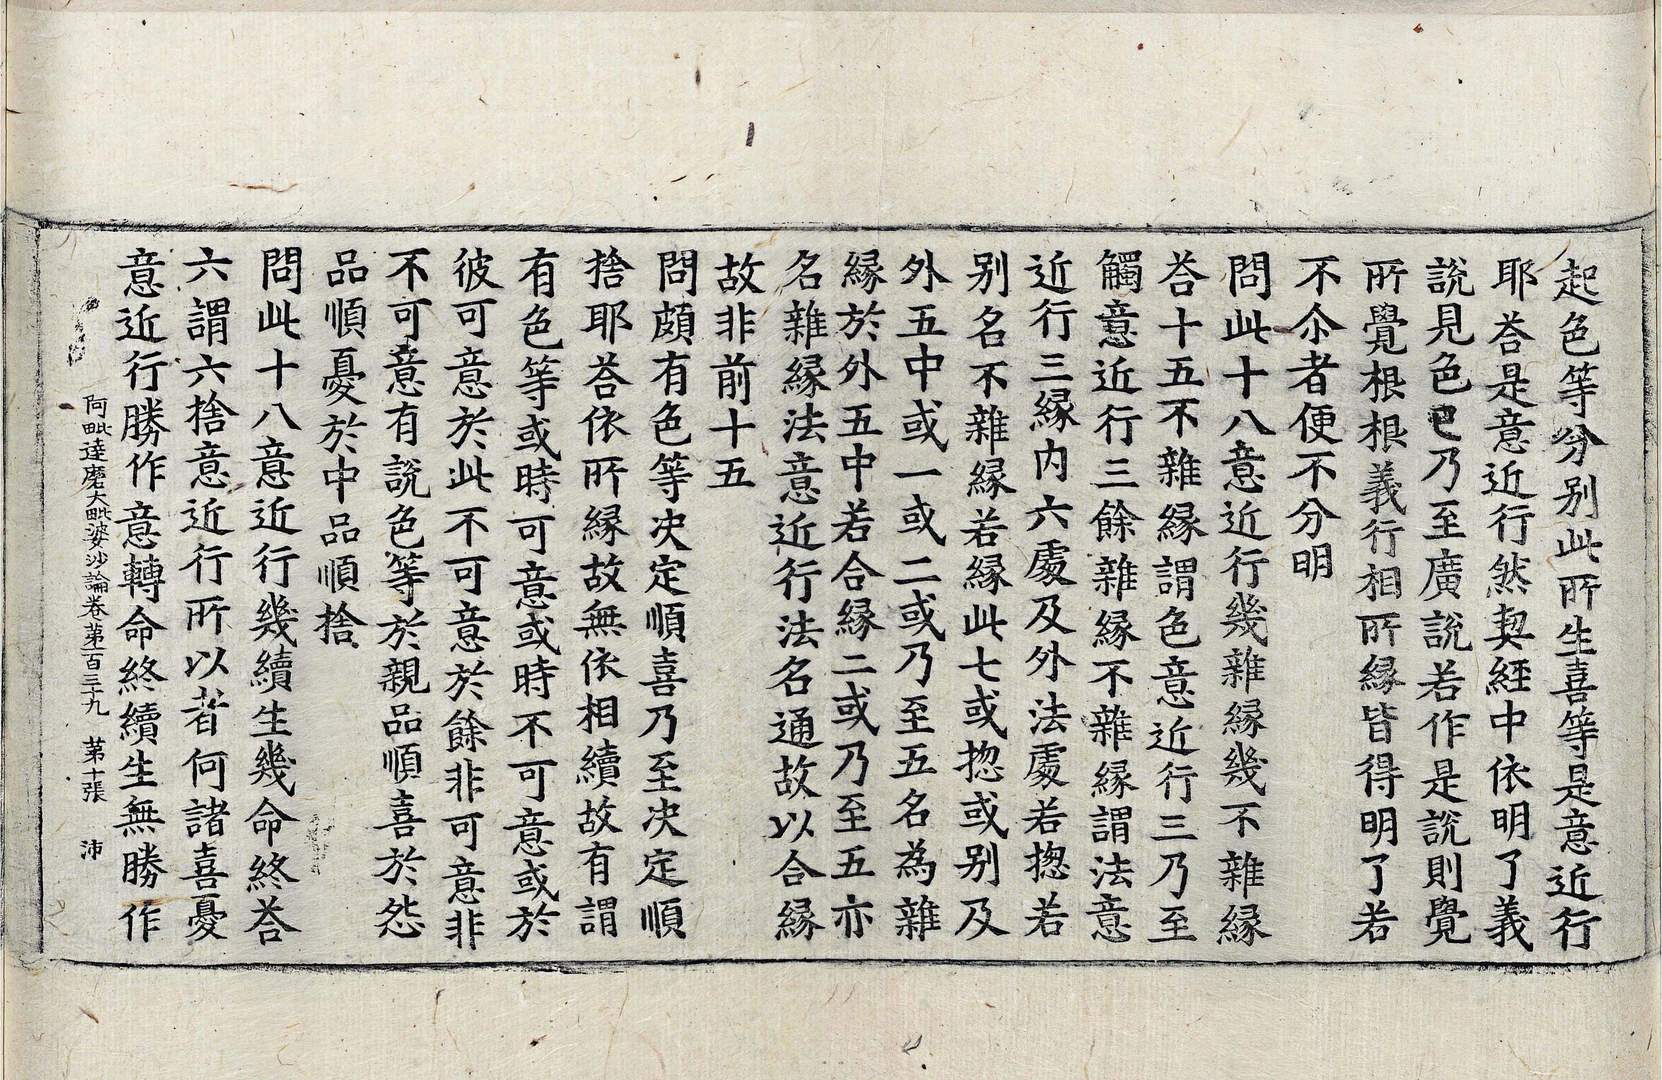 起色等分別此所生喜等是意近行
耶荅是意近行然契經中依明了義
說見色已乃至廣說若作是說則覺
所覺根根義行相所緣皆得明了若
不尒者便不分明
問此十八意近行幾雜緣幾不雜緣
荅十五不雜緣謂色意近行三乃至
觸意近行三餘雜緣不雜緣謂法意
近行三緣內六處及外法處若揔若
別名不雜緣若緣此七或揔或別及
外五中或一或二或乃至五名為雜
緣於外五中若合緣二或乃至五亦
名雜緣法意近行法名通故以合緣
故非前十五
問頗有色等決定順喜乃至決定順
捨耶荅依所緣故無依相續故有謂
有色等或時可意或時不可意或於
彼可意於此不可意於餘非可意非
不可意有說色等於親品順喜於怨
品順憂於中品順捨
問此十八意近行幾續生幾命終荅
六謂六捨意近行所以者何諸喜憂
意近行勝作意轉命終續生無勝作
阿毗達磨大毗婆沙論卷第一百三十九 第十張 沛